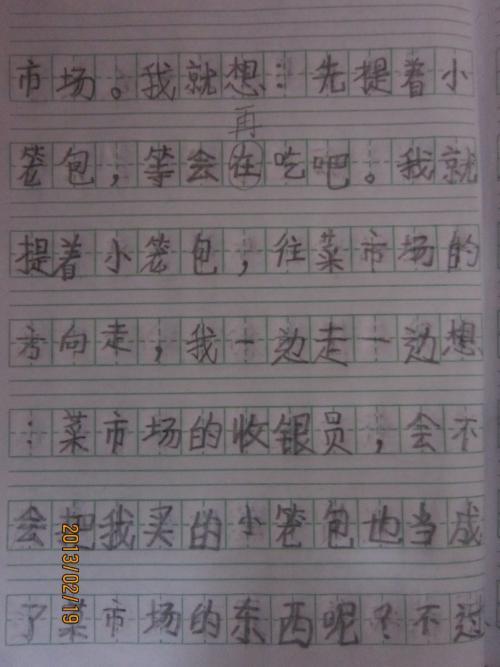 市场。我就想：先提着小
再
笼包，等会在吃吧。我就
提着小笼包，往菜市场的
方向走，我一边走一边想
：菜市场的收银员，会不
会把我买的小笼包也当成
了菜市场的东西呢？不过
2013/02/19